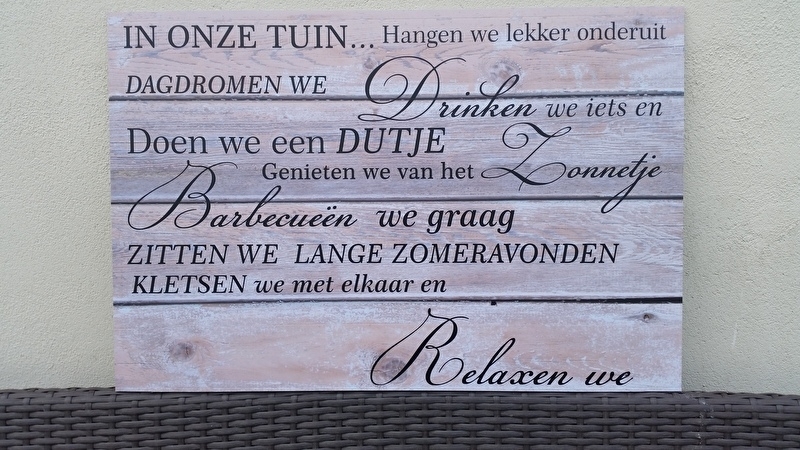 IN ONZE TUIN... Hangen we lekker onderuit
DAGDROMEN WE Drinken we iets en
Doen we een DUTJE
Genieten we van het Zonnetje
Barbecueën we graag
ZITTEN WE LANGE ZOMERAVONDEN
KLETSEN we met elkaar en
Relaxen we